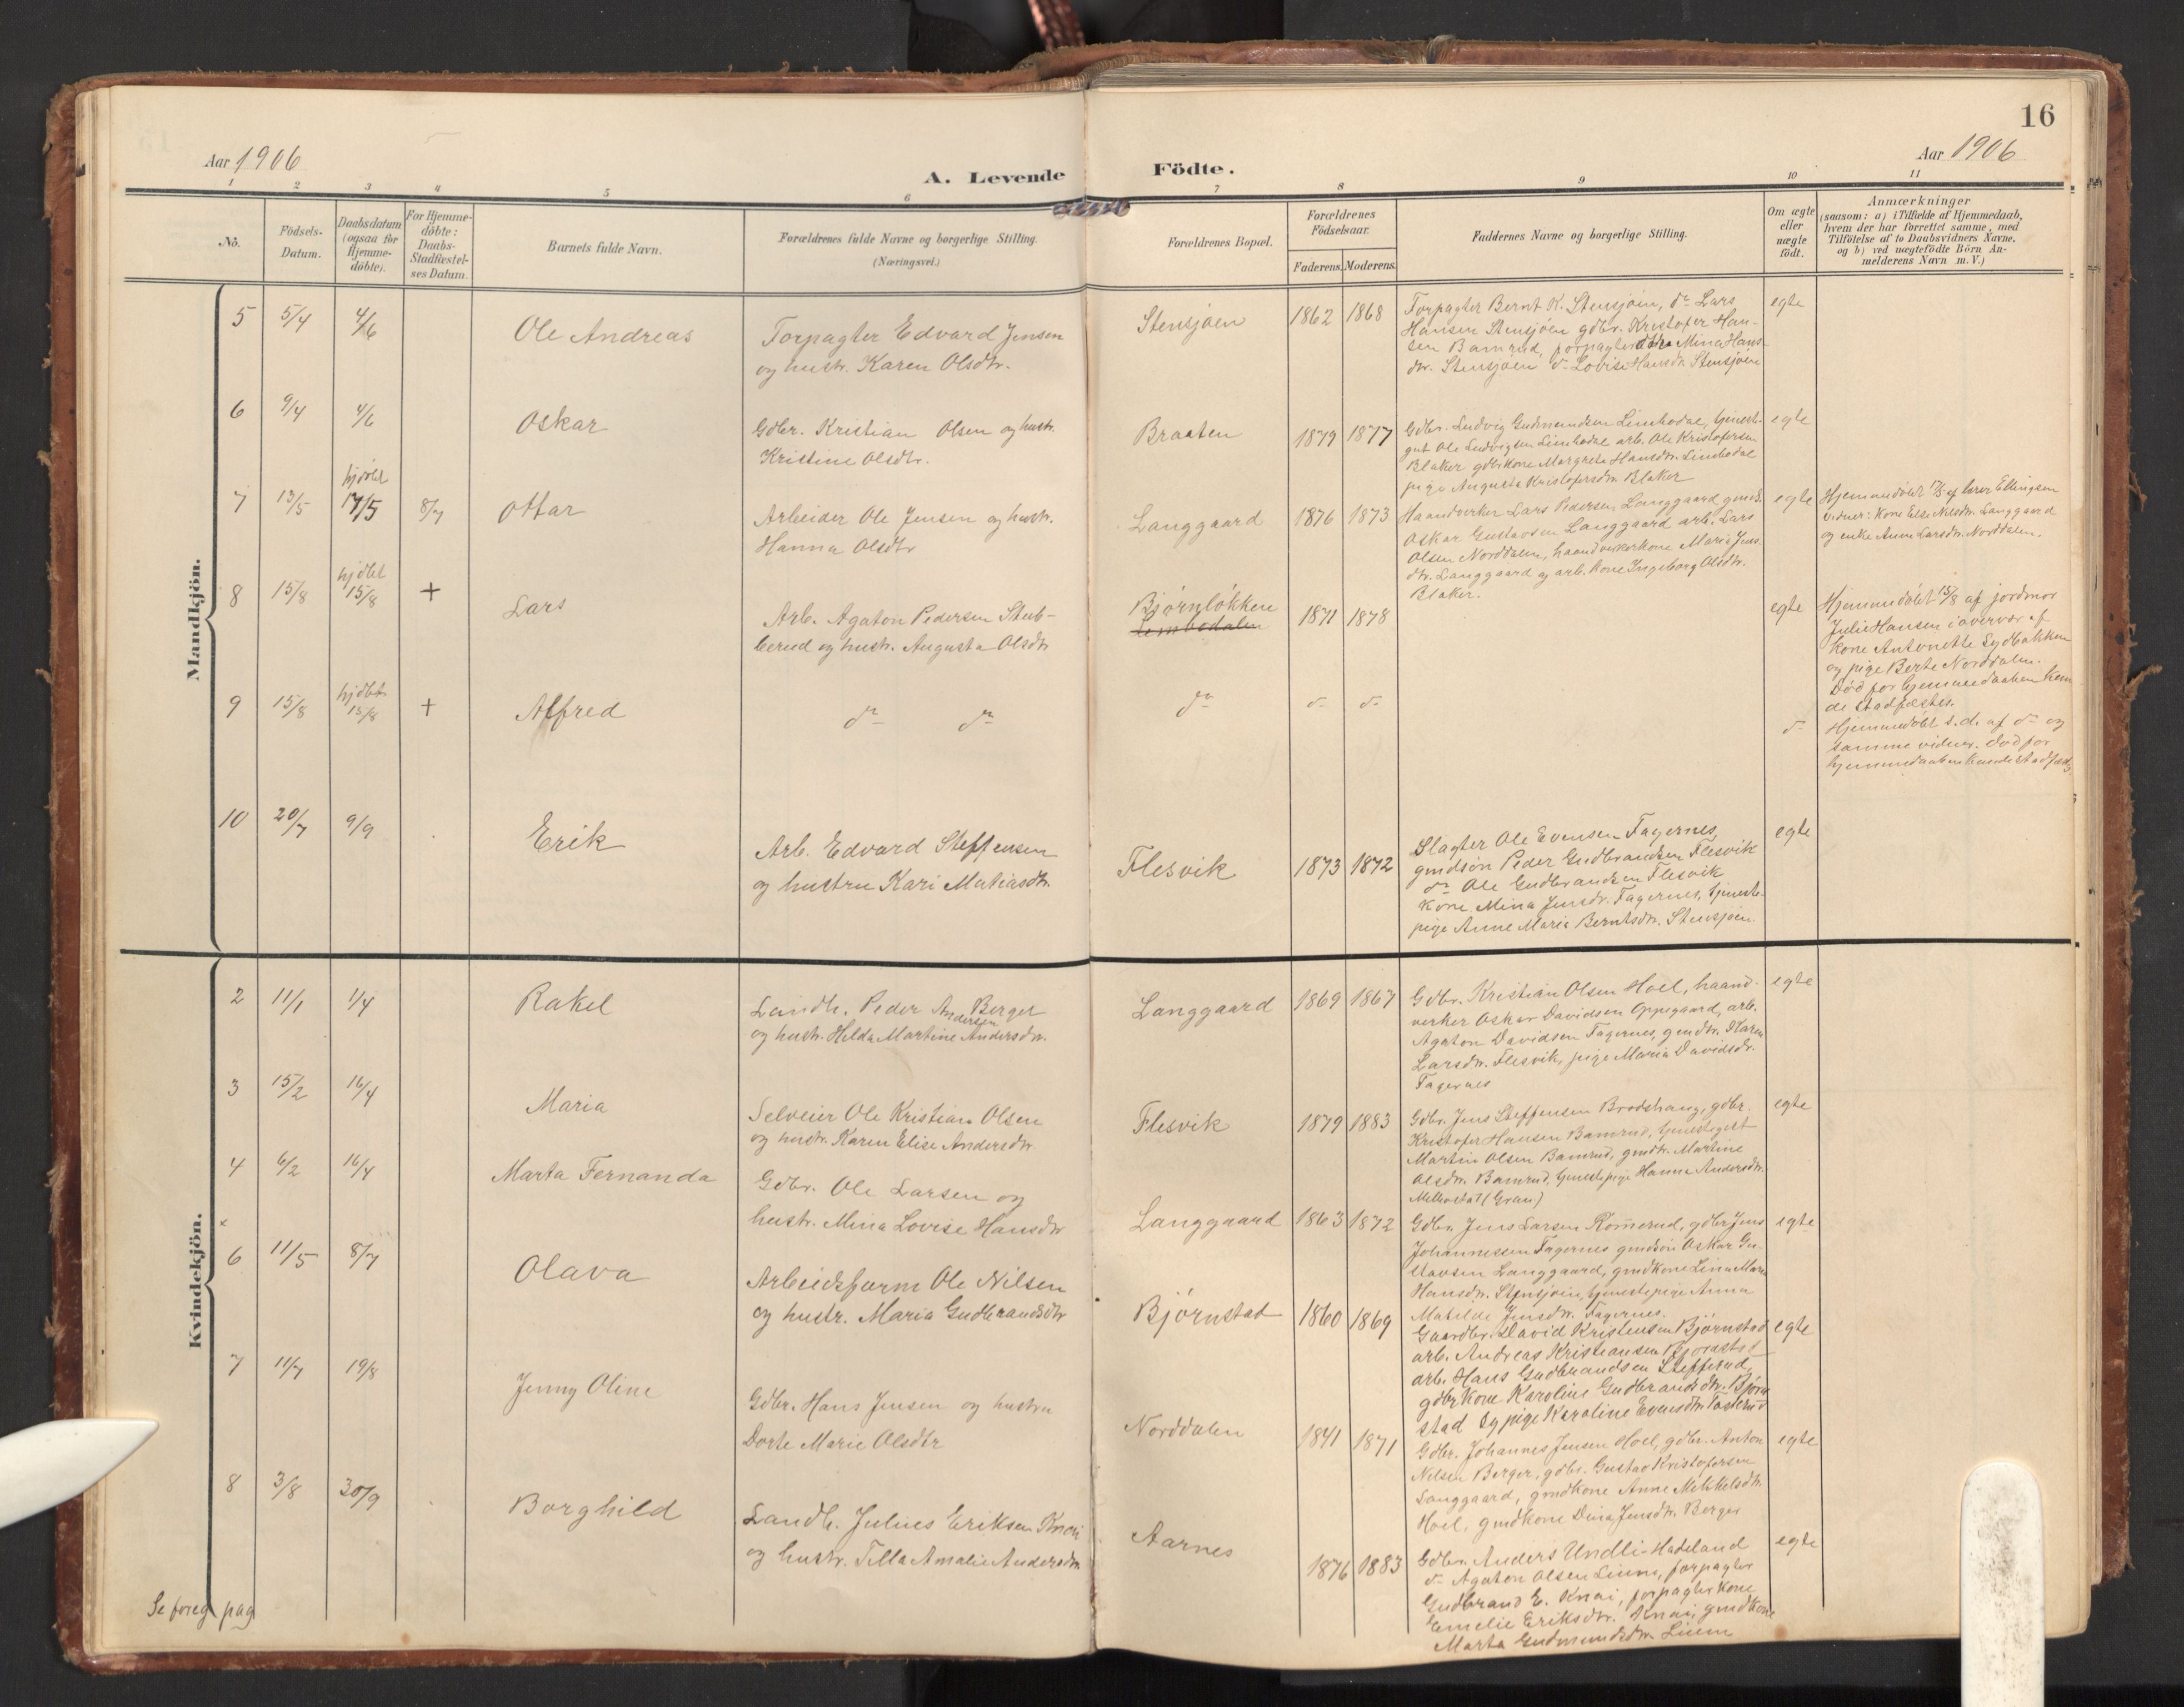 16
Aar 1906
Aar 1906
A. Levende Födte.
1 2 3 4 5 6 7 8 9 10 11
Nò.
Födsels-
Datum.
Daabsdatum
(ogsaa for
Hjemme-
döbte).
For Hjemme-
döbte:
Daabs-
Stadfæstel-
ses Datum.
Barnets fulde Navn.
Forældrenes fulde Navne og borgerlige Stilling.
(Næringsvei.)
Forældrenes Bopæl.
Forældrenes
Födselsaar.
Faderens. Moderens.
Faddernes Navne og borgerlige Stilling.
Om ægte
eller
uægte
födt.
Anmærkninger
(saasom: a) i Tilfælde af Hjemmedaab,
hvem der har forrettet samme, med
Tilföielse af to Daabsvidners Navne,
og b) ved uægtefödte Börn An-
melderens Navn m. V.)
Mandkjön.
5 5/4 4/6 Ole Andreas
Forpagter Edvard Jensen
og hustr. Karen Olsdtr.
Stensjøen 1862 1868
Forpagter Bernt K. Stensjøen, do Lars
Hansen Stensjøen gdbr. Kristofer Han-
sen Bamrud, forpagter Mina Hans-
dtr. Stensjøen do Lovise Hansdtr. Stensjøen
egte
6 9/4 4/6 Oskar
Gdbr. Kristian Olsen og hustr.
Kristine Olsdtr.
Braaten 1879 1877
Gdbr. Ludvig Gudmundsen Limbodal, tjeneste-
gut Ole Ludvigsen Limbodal arb. Ole Kristofersen
Blaker gdbrkone Margrete Hansdtr. Limbodal
pige Augusta Kristofersdtr. Blaker
egte
7 13/5 hjdøbt 17/5 8/7 Ottar
Arbeider Ole Jensen og hustr.
Hanna Olsdtr
Langgaard 1876 1873
Haandverker Lars Pedersen Langgaard, gmds.
Oskar Gustavsen Langgaard arb. Lars
Olsen Norddalen, haandverkerkone Maria Jens
dtr. Langgaard og arb. kone Ingeborg Olsdtr.
Blaker.
egte
Hjemmedøbt 17/5 af lærer Ellingsen
Vidner: Kone Else Nilsdtr. Langgaard
og enke Anne Larsdtr. Norddalen.
8 15/8 hjdbt 15/8 + Lars
Arb. Agaton Pedersen Stub-
berud og hustr. Augusta Olsdtr
Bjørnløkken
Limbodalen
1871 1878
egte
Hjemmedøbt 15/8 af jordmor
Julie Hansen i overvær af
kone Antonette Sydbakken
og pige Berte Norddalen.
Død før hjemmedaaben kun
de stadfæstes.
9 15/8 hjdbt 15/8 + Alfred
do do
do do do
do
Hjemmedøbt s.d. af do og
samme vidner. død før
hjemmedaaben kunde stadfæstes
10 20/7 9/9 Erik
Arb. Edvard Steffensen
og hustru Kari Matiasdtr.
Flesvik 1873 1872
Slagter Ole Evensen Fagernes,
gmdsøn Peder Gudbrandsen Flesvik
do Ole Gudbrandsen Flesvik
kone Mina Jensdtr. Fagernes, tjeneste-
pige Anne Maria Berntsdtr. Stensjøen
egte
Kvindekjön.
2 11/1 1/4 Rakel
Landh. Peder Andersen Berger
og hustr. Hilda Martine Andersdtr.
Langgaard 1869 1867
Gdbr. Kristian Olsen Hoel, haand-
verker Oskar Davidsen Oppegaard, arb.
Agaton Davidsen Fagernes, gmdtr. Karen
Larsdtr. Flesvik, pige Maria Davidsdtr.
Fagernes
egte
3 15/2 16/4 Maria
Selveier Ole Kristian Olsen
og hustr. Karen Elise Andersdtr
Flesvik 1879 1883
Gdbr. Jens Steffensen Brodshaug, gdbr.
Kristofer Hansen Bamrud, tjenestegut
Martin Olsen Bamrud, gmdtr. Martine
Olsdtr. Bamrud, tjenestepige Hanna Andersdtr.
(Gran)
egte
4 6/2 16/4 Marta Fernanda
Gdbr. Ole Larsen og
hustr. Mina Lovise Hansdtr
Langgaard 1863 1872
Gdbr. Jens Larsen Romerud, gdbr Jens
Johannessen Fagernes gmdsøn Oskar Gu-
stavsen Langgaard, gmdkone Lina Marie
Hansdtr. Stensjøen, tjenestepige Anna
Matilde Jensdtr. Fagernes.
egte
x
6 11/5 8/7 Olava
Arbeidsform Ole Nilsen
og hustr. Maria Gudbrandsdtr
Bjørnstad 1860 1869
Gaardbr. David Kristensen Bjørnstad
arb. Andreas Kristiansen Bjørnstad
arb. Hans Gudbrandsen Stefferud,
gdbr kone Karoline Gudbrandsdtr. Bjørn
stad og pige Karoline Evensdtr.
egte
7 11/7 19/8 Jenny Oline
Gdbr. Hans Jensen og hustru
Dorte Marie Olsdtr
Norddalen 1841 1871
Gdbr. Johannes Jensen Hoel, gdbr. Anton
Nilsen Berger, gdbr. Gustav Kristofersen
Langgaard, gmdkone Anne Mikkelsdtr.
Hoel, gmdkone Dina Jensdtr. Berger
egte
8 3/8 30/9 Borghild
Landh. Julius Eriksen Knai
og hustr. Tilla Amalie Andersdtr
Aarnes 1876 1883
Gdbr. Anders Undli-Hadeland
do Agaton Olsen Lium, forpagter
Gudbrand E. Knai, forpagter kone
Emelie Eriksdtr. Knai, gmdkone
Marta Gudmundsdtr. Lium
egte
Se foreg pag